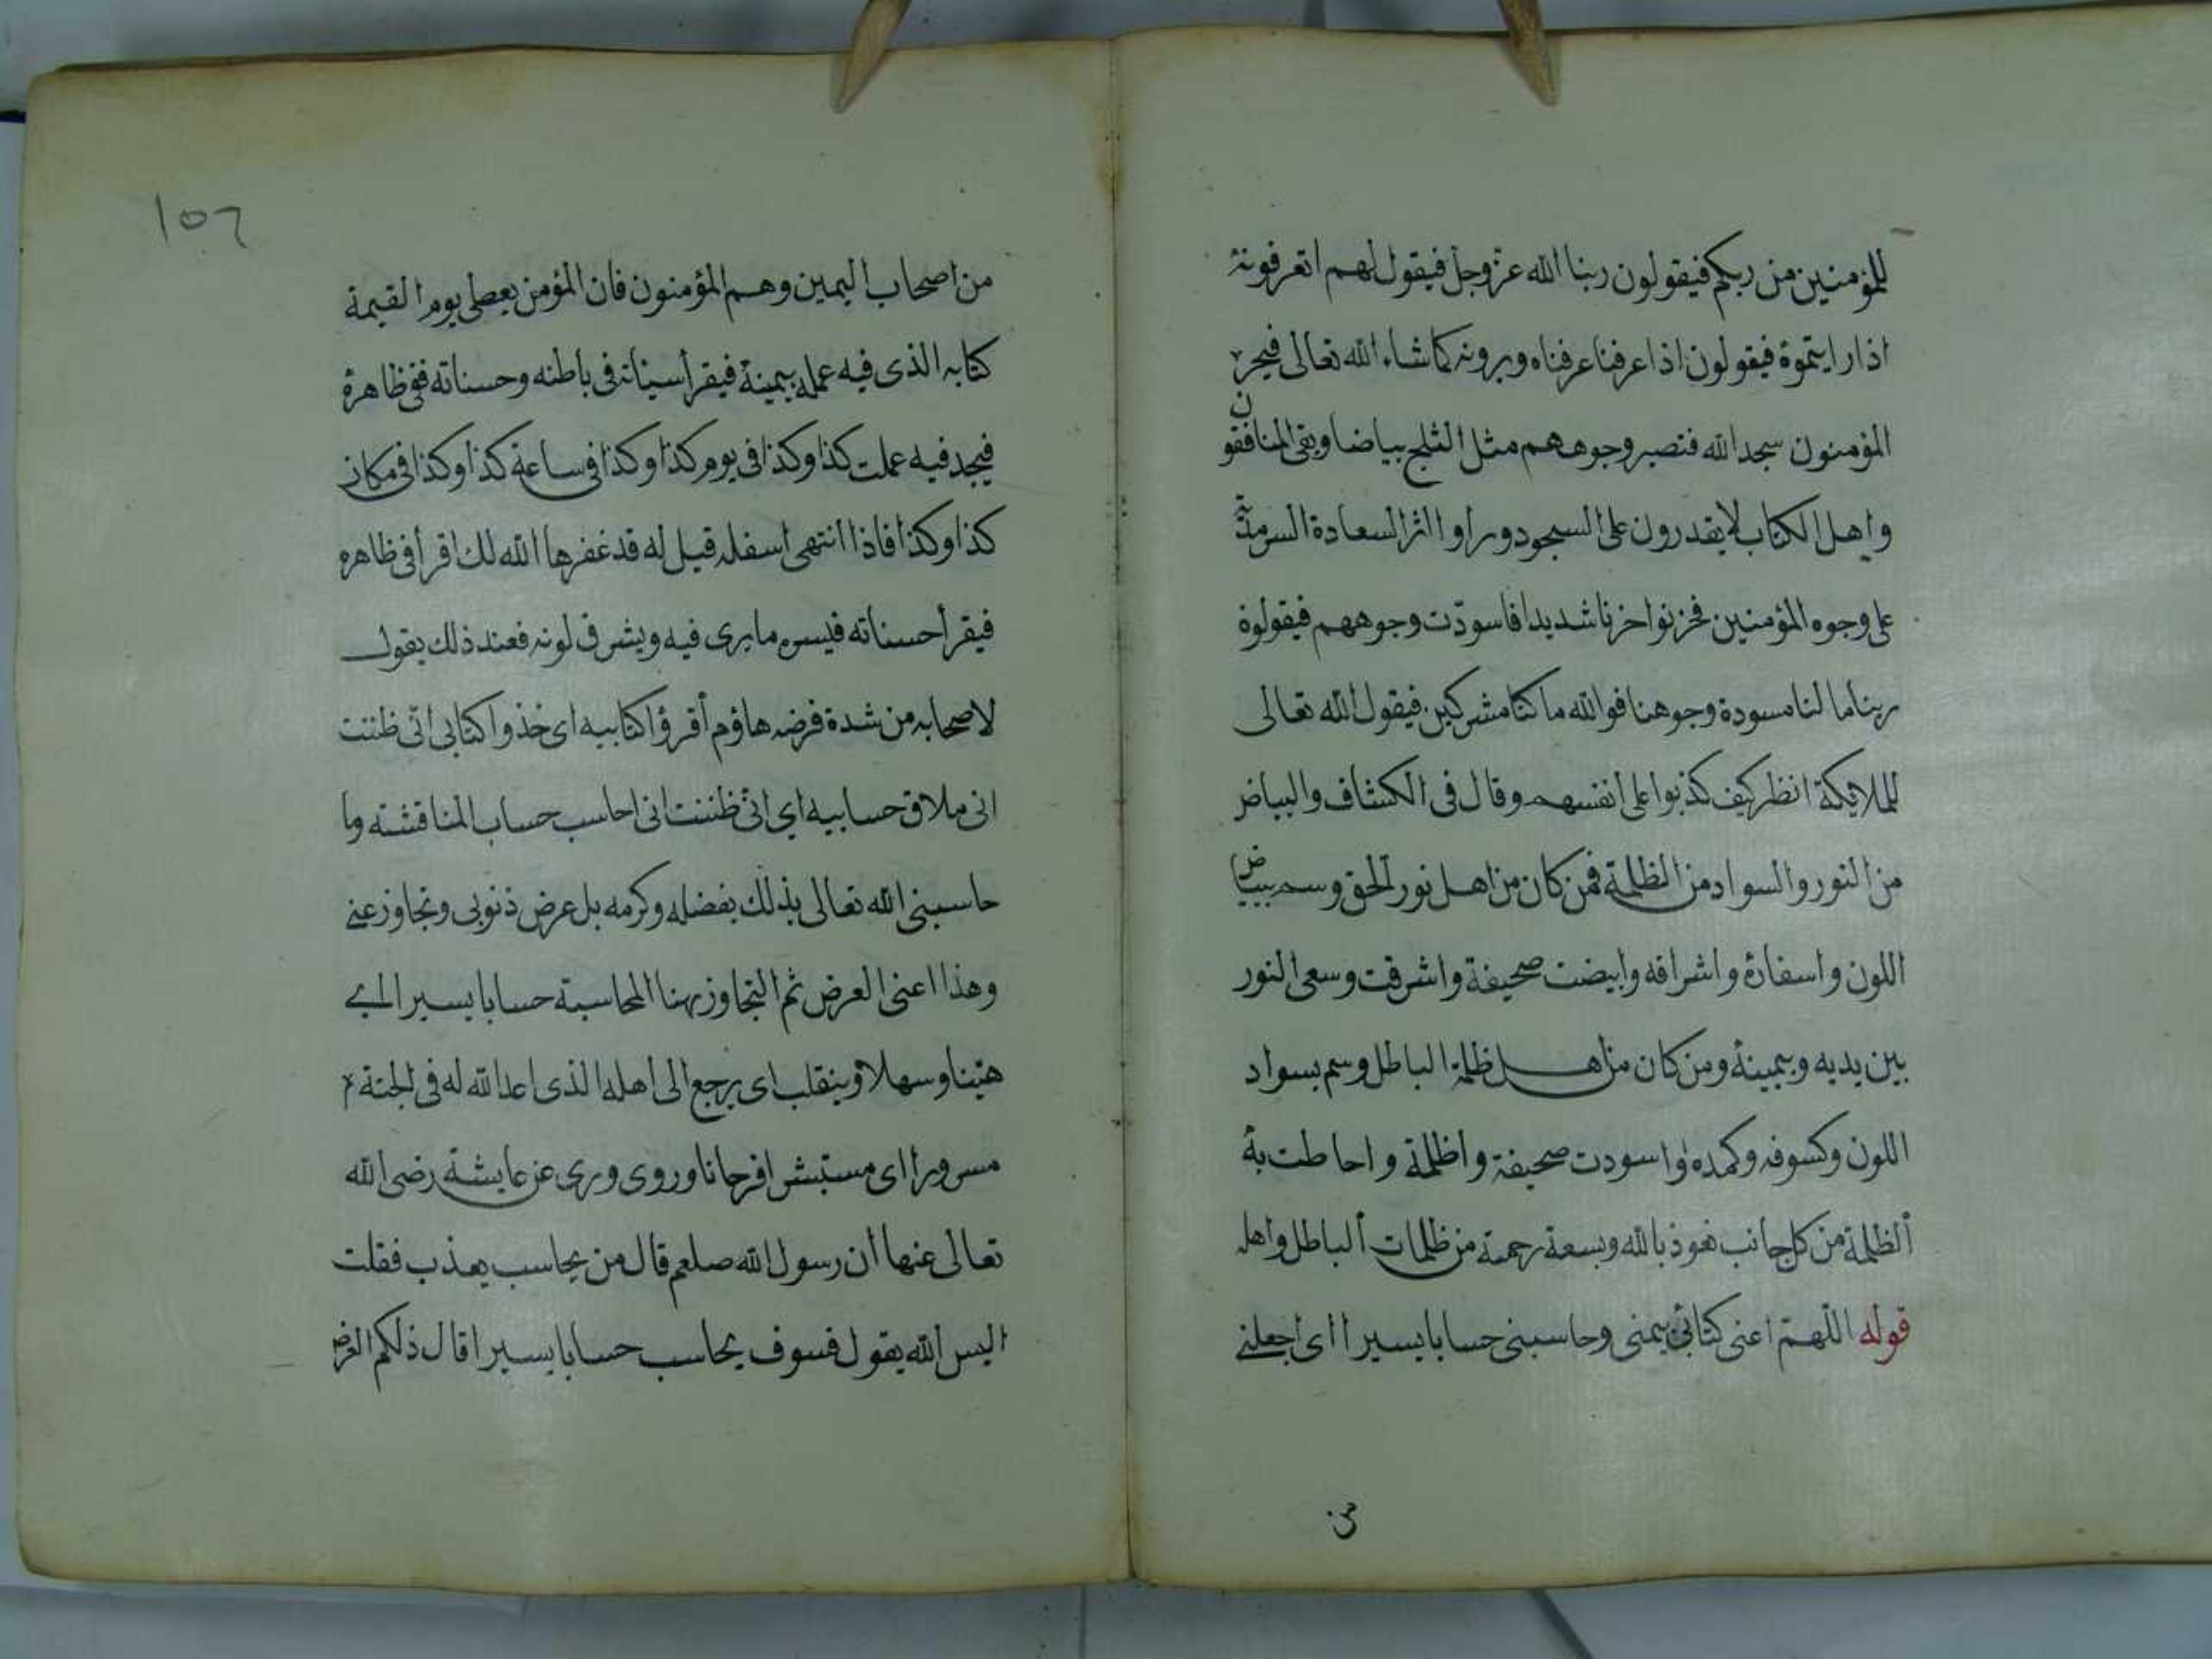 للمؤمنين من ربكم فيقولون ربنا الله عز وجل فيقول لهم اتعرفونه
اذا رايتموه فيقولون اذا عرفنا عرفناه ويرونه كما شاء الله تعالى فيخر
المؤمنون سجد الله فتصير وجوههم مثل الثلج بياضا وبقى المنافقون
واهل الكتاب لا يقدرون على السجود وراوا اثر السعادة السرمدية
على وجوه المؤمنين فخزنوا خزنا شديدا فاسودّت وجوههم فيقولوة
ربنا ما لنا مسودة وجوهنا فوالله ما كنا مشركين فيقول الله تعالى
للملائكة انظر كيف كذبوا على انفسهم وقال فى الكشاف والبياض
من النور والسواد من الظلمة فمن كان من اهل نور الحق وسم ببياض
اللون واسفاره واشراقه وابيضت صحيفة واشرقت وسعى النور
بين يديه وبيمينة ومن كان من اهل ظلمة الباطل وسم بسواد
اللون وكسوفه وكمده واسودت صحيفة واظلمة واحاطت به
الظلمة من كل جانب نعوذ بالله وبسعة رحمته من ظلمات الباطل واهله
قوله اللهم اعنى كتابى بيمنى وحاسبنى حسابا يسيرا اى اجعلنى
من
١٥٦
من اصحاب اليمين وهم المؤمنون فان المؤمن يعطى يوم القيمة
كتابه الذى فيه عمله بيمينة فيقرأ سيئاته فى باطنه وحسناته ففى ظاهره
فيجد فيه عملت كذا وكذا فى يوم كذا وكذا فى ساعة كذا وكذا فى مكان
كذا وكذا فاذا انتهى اسفله قيل له قد غفرها الله لك اقرأ فى ظاهره
فيقرأ حسناته فيسره ما يرى فيه ويشرق لونه فعند ذلك يقول
لاصحابه من شدة فرضه هاؤم أقرؤا كتابيه اى خذوا كتابى انّى ظننت
انى ملاق حسابيه اى انّى ظننت انى احاسب حساب المناقشته وما
حاسبنى الله تعالى بذلك بفضله وكرمه بل عرض ذنوبى وتجاوز عنى
وهذا اعنى العرض ثم التجاوز بهنا المحاسبة حسابا يسيرا اى
هيّنا وسهلا وينقلب اى يرجع الى اهله الذى اعد الله له فى الجنة
مسرورا اى مستبشرا فرحانا وروى ورى عن عايشة رضى الله
تعالى عنها ان رسول الله صلعم قال من يحاسب يعذب فقلت
اليس الله يقول فسوف يحاسب حسابا يسيرا قال ذلكم العرض